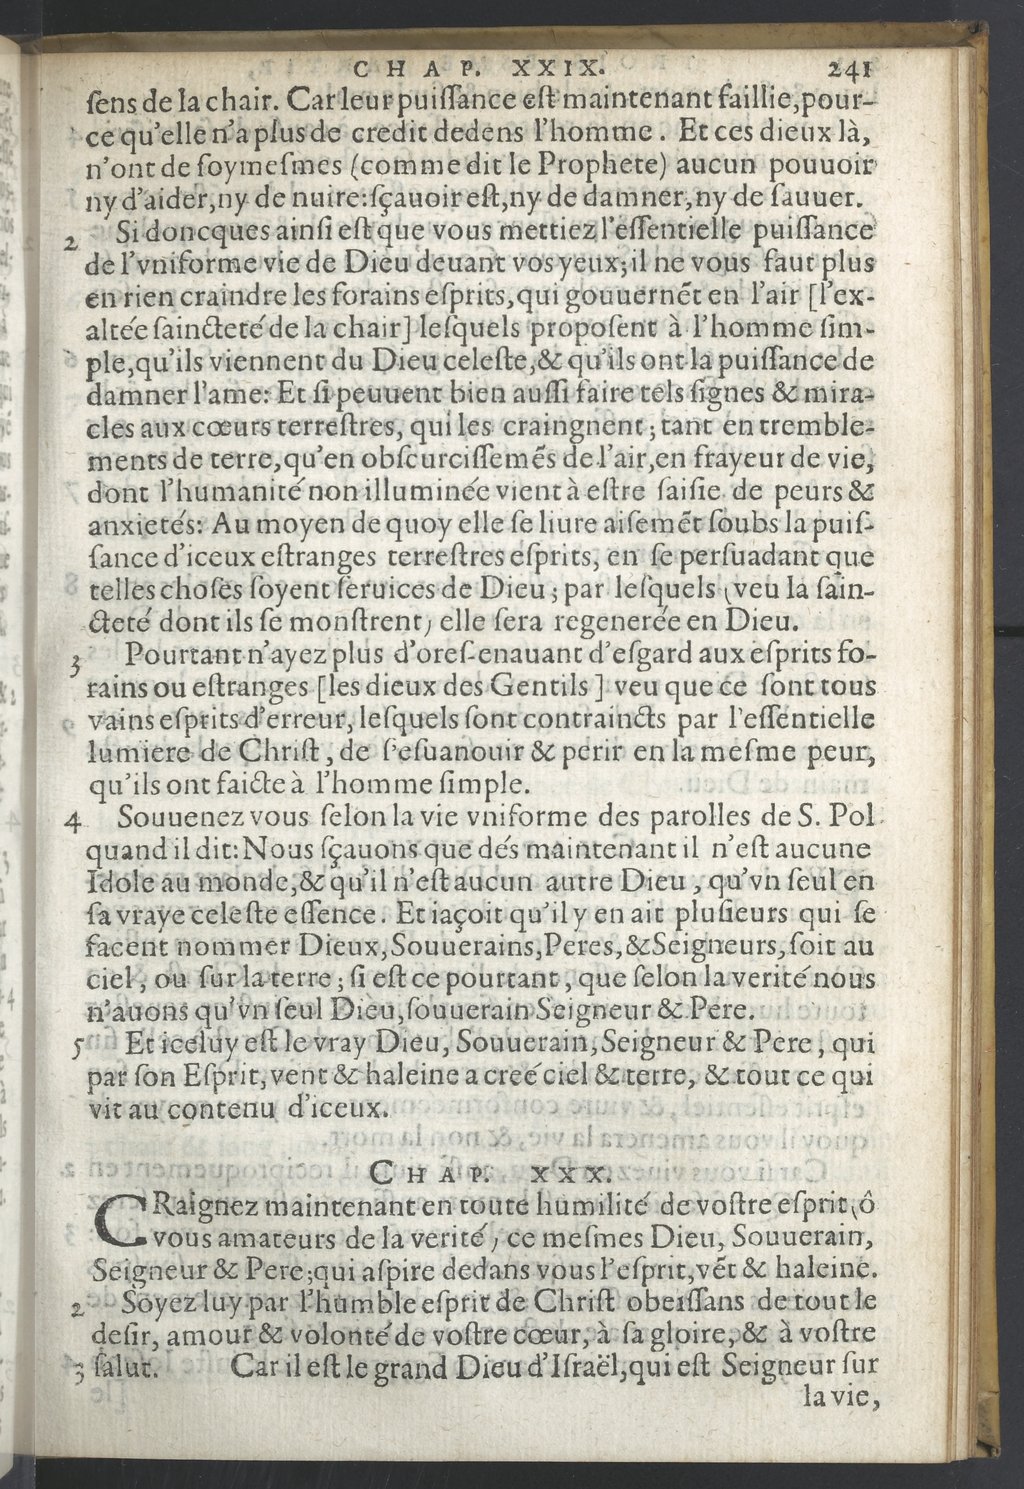 CHAP. XXIX. 241
ſens de la chair. Car leur puiſſance eſt maintenant faillie, pour-
ce qu'elle n'a plus de credit dedens l'homme. Et ces dieux là,
n'ont de ſoymeſmes (comme dit le Prophete) aucun pouuoir
ny d'aider, ny de nuire: ſçauoir eſt, ny de damner, ny de ſauuer.
2 Si doncques ainſi eſt que vous mettiez l'eſſentielle puiſſance
de l'vniforme vie de Dieu deuant vos yeux; il ne vous faut plus
en rien craindre les forains eſprits, qui gouuernẽt en l'air [l'ex-
altée ſaincteté de la chair] leſquels propoſent à l'homme ſim-
ple, qu'ils viennent du Dieu celeſte, & qu'ils ont la puiſſance de
damner l'ame: Et ſi peuuent bien auſſi faire tels ſignes & mira-
cles aux cœurs terreſtres, qui les craingnent; tant en tremble-
ments de terre, qu'en obſcurciſſemẽs de l'air, en frayeur de vie,
dont l'humanité non illuminée vient à eſtre ſaiſie de peurs &
anxietés: Au moyen de quoy elle ſe liure aiſemẽt ſoubs la puiſ-
ſance d'iceux eſtranges terreſtres eſprits, en ſe perſuadant que
telles choſes ſoyent ſeruices de Dieu; par leſquels (veu la ſain-
cteté dont ils ſe monſtrent) elle ſera regenerée en Dieu.
3 Pourtant n'ayez plus d'oreſ-enauant d'eſgard aux eſprits fo-
rains ou eſtranges [les dieux des Gentils] veu que ce ſont tous
vains eſprits d'erreur, leſquels ſont contraincts par l'eſſentielle
lumiere de Chriſt, de ſ'eſuanouir & perir en la meſme peur,
qu'ils ont faicte à l'homme ſimple.
4 Souuenez vous ſelon la vie vniforme des parolles de S. Pol
quand il dit: Nous ſçauons que dés maintenant il n'eſt aucune
Idole au monde, & qu'il n'eſt aucun autre Dieu, qu'vn ſeul en
ſa vraye celeſte eſſence. Et iaçoit qu'il y en ait pluſieurs qui ſe
facent nommer Dieux, Souuerains, Peres, & Seigneurs, ſoit au
ciel, ou ſur la terre; ſi eſt ce pourtant, que ſelon la verité nous
n'auons qu'vn ſeul Dieu, ſouuerain Seigneur & Pere.
5 Et iceluy eſt le vray Dieu, Souuerain, Seigneur & Pere, qui
par ſon Eſprit, vent & haleine a creé ciel & terre, & tout ce qui
vit au contenu d'iceux.
CHAP. XXX.
CRaignez maintenant en toute humilité de voſtre eſprit (ô
vous amateurs de la verité) ce meſmes Dieu, Souuerain,
Seigneur & Pere; qui aſpire dedans vous l'eſprit, vẽt & haleine.
2 Soyez luy par l'humble eſprit de Chriſt obeiſſans de tout le
deſir, amour & volonté de voſtre cœur, à ſa gloire, & à voſtre
3 ſalut. Car il eſt le grand Dieu d'Iſraël, qui eſt Seigneur ſur
la vie,